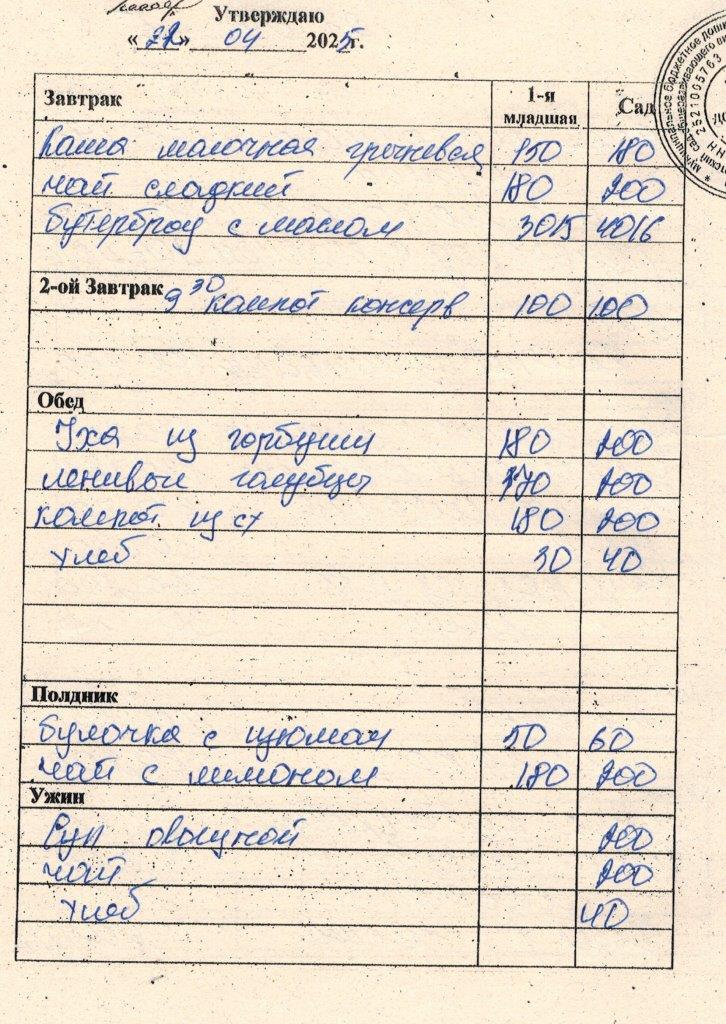 Утверждаю
«22» 04 2025г.
Завтрак 1-я младшая Сад
Каша молочная гречневая 150 180
чай сладкий 180 200
бутерброд с маслом 30/5 40/6
2-ой Завтрак 9 30 компот консерв 100 100
Обед
Уха из горбуши 180 200
ленивые голубцы 170 200
компот из с/х 180 200
хлеб 30 40
Полдник
булочка с изюмом 50 60
чай с лимоном 180 200
Ужин
Суп овощной 200
чай 200
хлеб 40